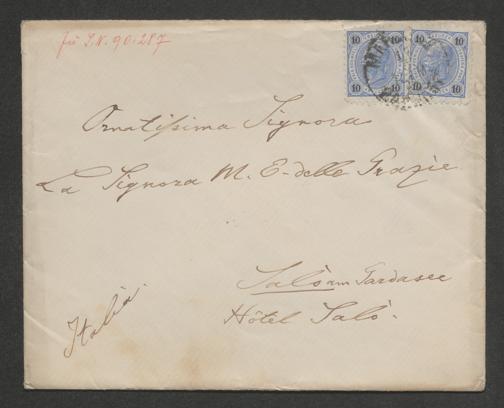 Zu I.N. 90.287
10 10 10 10
10 10 10 10
Ornatissima Signora
La Signora M. E. delle Grazie
Salò am Gardasee
Hôtel Salò.
Italia.